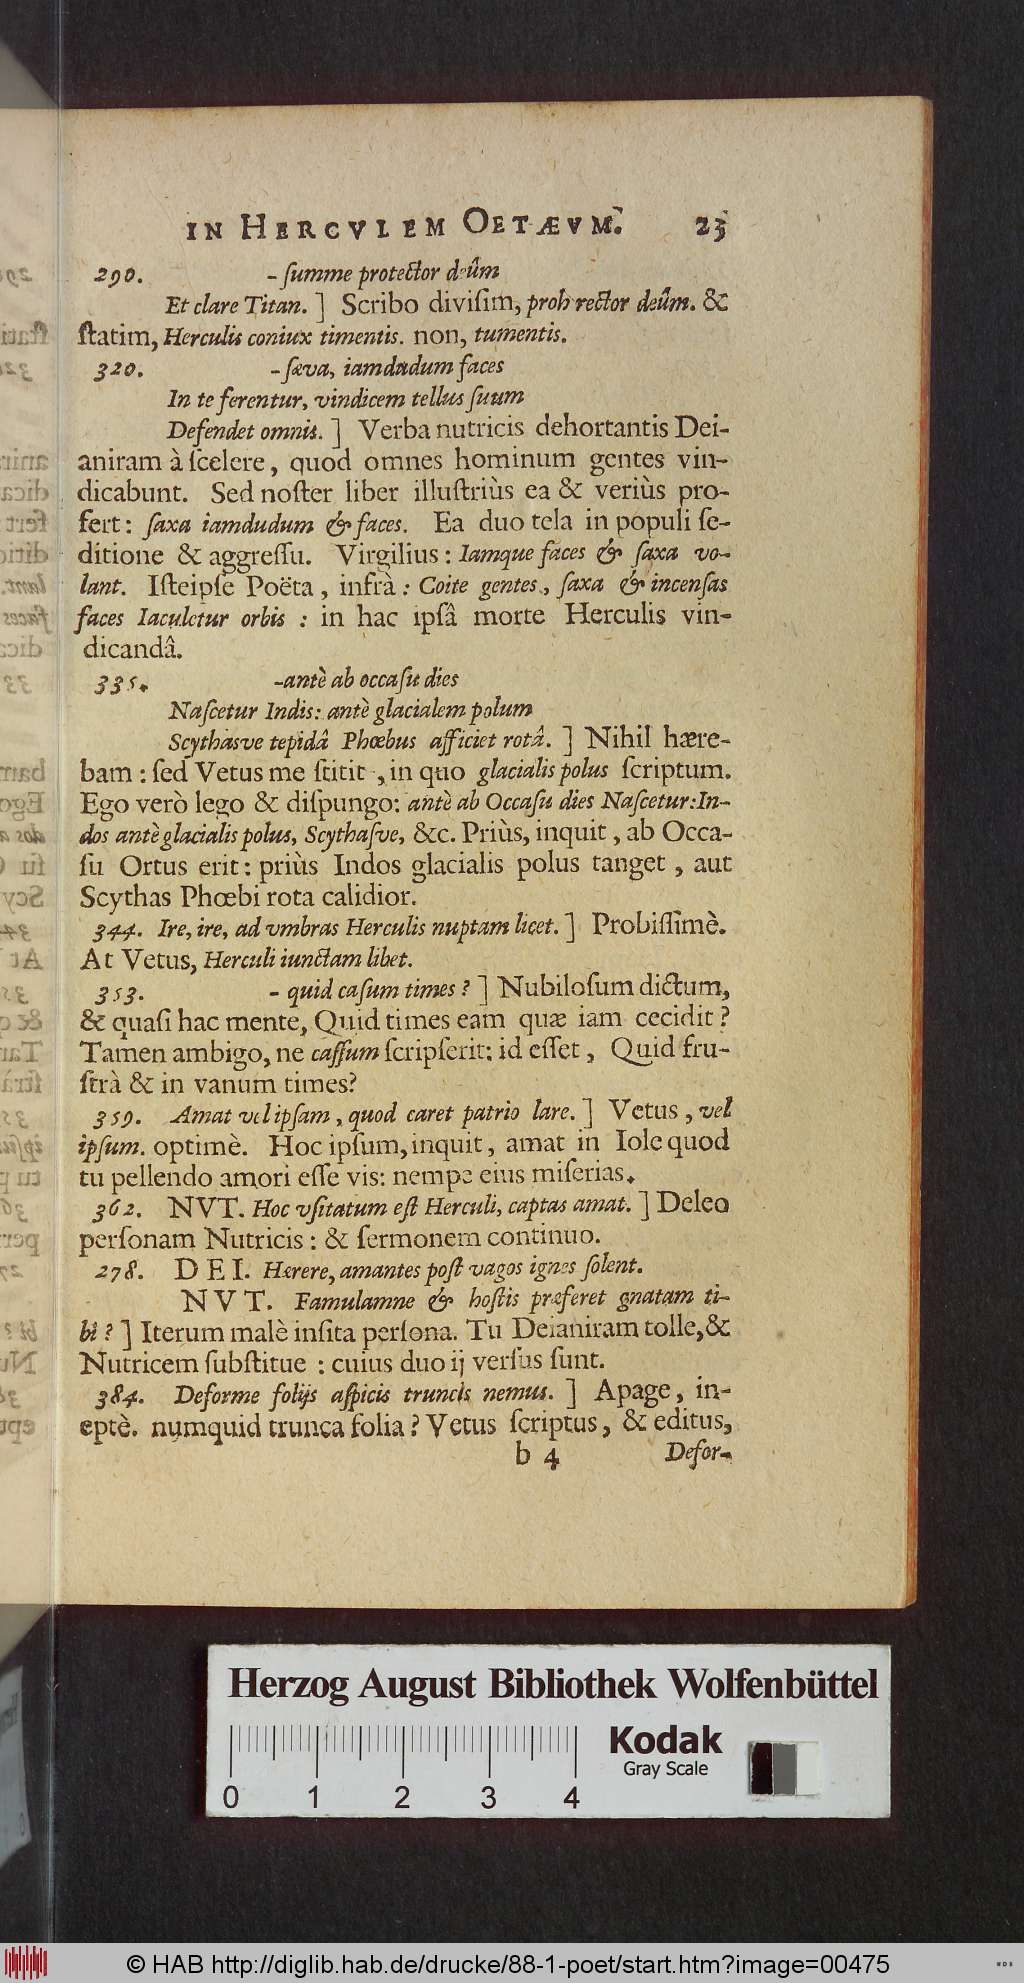 IN HERCVLEM OETÆVM. 23
290. - ſumme protector deûm
Et clare Titan. ] Scribo diviſim, proh rector deûm. &
ſtatim, Herculis coniux timentis. non, tumentis.
320. - ſæva, iamdudum faces
In te ferentur, vindicem tellus ſuum
Defendet omnis. ] Verba nutricis dehortantis Dei-
aniram à ſcelere, quod omnes hominum gentes vin-
dicabunt. Sed noſter liber illuſtriùs ea & veriùs pro-
fert: ſaxa iamdudum & faces. Ea duo tela in populi ſe-
ditione & aggreſſu. Virgilius: Iamque faces & ſaxa vo-
lant. Iſteipſe Poëta, infrà: Coite gentes, ſaxa & incenſas
faces Iaculetur orbis : in hac ipſâ morte Herculis vin-
dicandâ.
335. -antè ab occaſu dies
Naſcetur Indis: antè glacialem polum
Scythasve tepidâ Phœbus afficiet rotâ. ] Nihil hære-
bam: ſed Vetus me ſtitit, in quo glacialis polus ſcriptum.
Ego verò lego & diſpungo: antè ab Occaſu dies Naſcetur: In-
dos antè glacialis polus, Scythaſve, &c. Priùs, inquit, ab Occa-
ſu Ortus erit: priùs Indos glacialis polus tanget, aut
Scythas Phœbi rota calidior.
344. Ire, ire, ad vmbras Herculis nuptam licet. ] Probiſſimè.
At Vetus, Herculi iunctam libet.
353. - quid caſum times? ] Nubiloſum dictum,
& quaſi hac mente, Quid times eam quæ iam cecidit?
Tamen ambigo, ne caſſum ſcripſerit: id eſſet, Quid fru-
ſtrà & in vanum times?
359. Amat vel ipſam, quod caret patrio lare. ] Vetus, vel
ipſum. optimè. Hoc ipſum, inquit, amat in Iole quod
tu pellendo amori eſſe vis: nempe eius miſerias.
362. NVT. Hoc vſitatum eſt Herculi, captas amat. ] Deleo
perſonam Nutricis: & ſermonem continuo.
278. DEI. Hærere, amantes poſt vagos ignes ſolent.
NVT. Famulamne & hoſtis præferet gnatam ti-
bi? ] Iterum malè inſita perſona. Tu Deianiram tolle, &
Nutricem ſubſtitue : cuius duo ij verſus ſunt.
384. Deforme folijs aſpicis truncis nemus. ] Apage, in-
eptè. numquid trunca folia? Vetus ſcriptus, & editus,
b 4 Defor-
Herzog August Bibliothek Wolfenbüttel
Kodak
Gray Scale
0 1 2 3 4
© HAB http://diglib.hab.de/drucke/88-1-poet/start.htm?image=00475